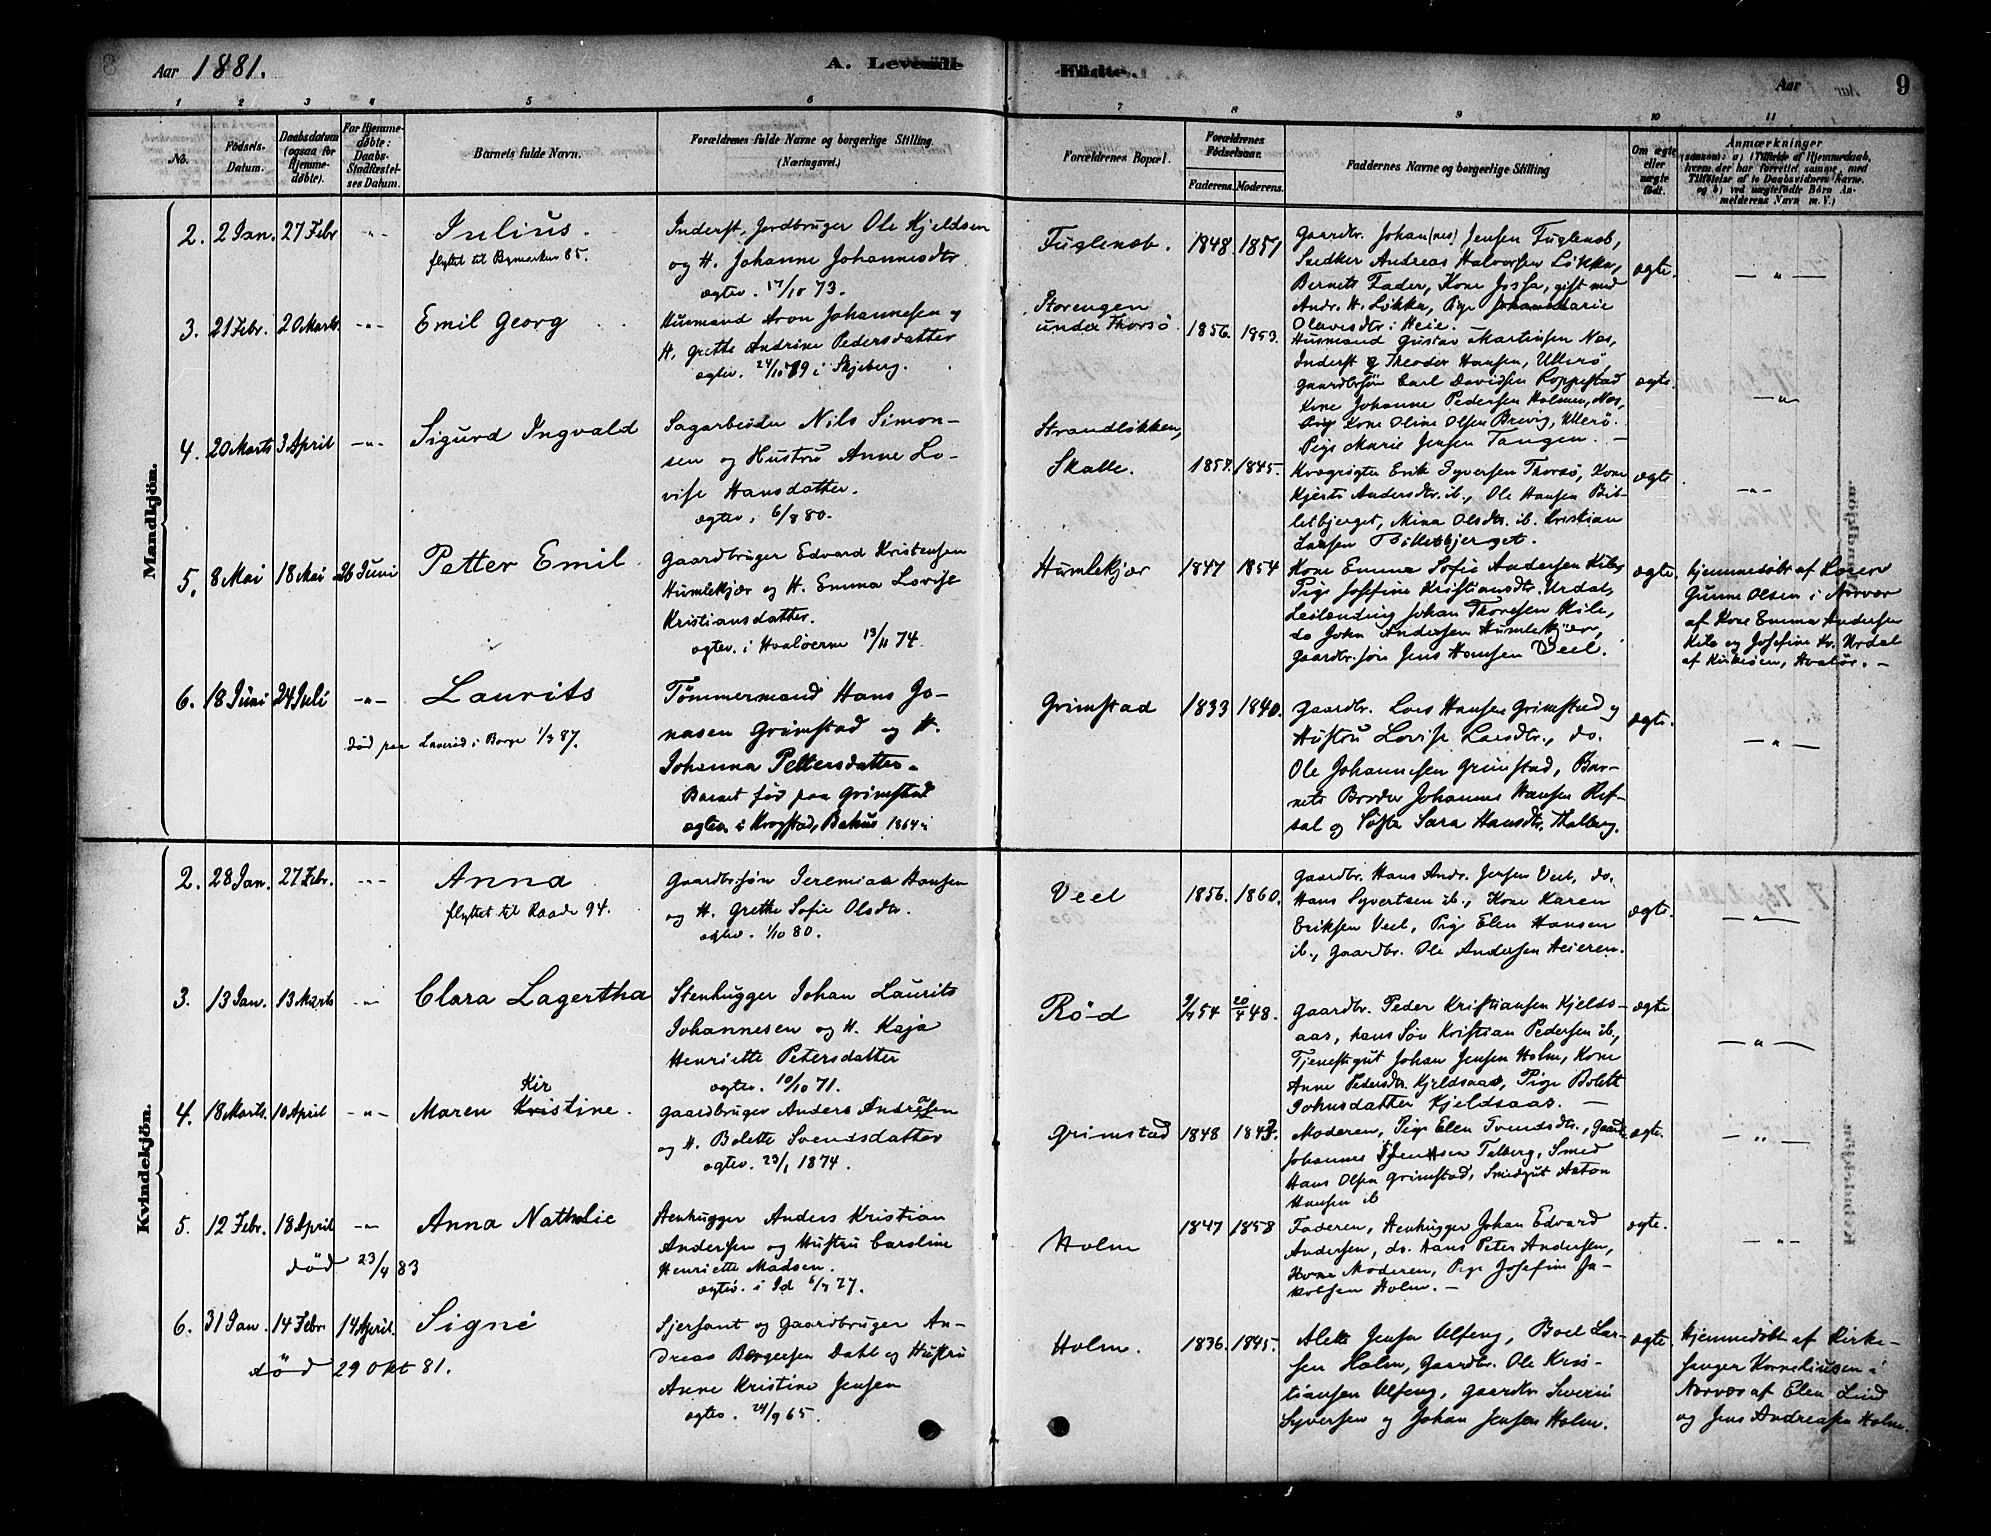 8 Aar 1881. A. Levende Födte. Aar 9
1 2 3 4 5 6 7 8 9 10 11
No.
Födsels-Datum.
Daabsdatum (ogsaa for Hjemmedøbte).
For Hjemmedøbte: Daabs-Stadfæstelses Datum.
Barnets fulde Navn.
Forældrenes fulde Navne og borgerlige Stilling.
(Næringsvei.)
Forældrenes Bopæl.
Forældrenes Födselsaar.
Faderens. Moderens.
Faddernes Navne og borgerlige Stilling
Om ægte eller uægte født.
Anmærkninger
(saasom: a) i Tilfælde af Hjemmedaab, hvem der har forrettet samme, med Tilføielse af to Daabsvidners Navne. og b) ved uægtefødte Börn Anmelderens Navn m. V.)
Mandkjön.
2. 2 Jan. 27 Febr -"- Julius.
flyttet til Bymarken 85.
Inderst, Jordbruger Ole Kjeldsen
og H. Johanne Johannesdtr
ægtev. 17/10 73.
Fuglenæb. 1848 1851
Gaardbr. Johan(nes) Jensen Fuglenæb,
Snedker Andreas Halvorsen Løkka,
Barnets Fader, Kone Jossa, gift med
Andr. H. Løkka, Pige Johanne Marie
Olavesdtr. Heie.
ægte. -"-
3. 21 Febr. 20 Marts -"- Emil Georg
Husmand Aron Johannesen og
H. Grethe Andrine Pedersdatter
ægtev. 24/10 79 i Skjeberg.
Storengen
under Thorsø. 1856. 1853.
Husmand Gustav Martinsen Næs,
Inderst Theodor Hansen, Ullerø,
Gaardbrsøn Carl Davidsen Roppestad
Kone Johanne Pedersen Holmen, Næs,
Kone Oline Olsen Brevig, Ullerø.
Pige Marie Jensen Tangen. -
ægte. -"-
4. 20 Marts 3 April -"- Sigurd Ingvald
Sagarbeider Nils Simon-
sen og Hustru Anne Lo-
vise Hansdatter.
ægtev. 6/8 80.
Strandløkken,
Skalle. 1857. 1845.
Kvægrigter Erik Syversen Thorsø, Kone
Kjerti Andersdtr. ib., Ole Hansen Bil-
letbjerget, Mina Olsdtr. ib. Kristian
Larsen Billetbjerget.
ægte -"-
5. 8 Mai 18 Mai 26 Juni Petter Emil.
Gaardbruger Edvard Kristensen
Humlekjær og H. Emma Lovise
Kristiansdatter.
ægtev. i Hvaløerne 13/11 74.
Humlekjær 1847 1854
Kone Emma Sofie Andersen Kile,
Pige Josefine Kristiansdtr. Urdal,
Leilending Johan Thoresen Kile,
do John Andersen Humlekjær,
Gaardbr.søn Jens Hansen Veel.
ægte.
Hjemmedøbt af Lærer
Gunne Olsen i Nærvær
af Kone Emma Andersen
Kile og Josefine Kr. Urdal
af Kirkeøen, Hvaløer. -
6. 18 Juni 24 Juli -"- Laurits
død paa Lauved i Borge 1/3 87.
Tømmermand Hans Jo-
nasen Grimstad og H.
Johanna Pettersdatter.
Barnet født paa Grimstad
ægtev. i Krogstad, Bahus 1864.
Grimstad 1833 1840.
Gaardbr. Lars Hansen Grimstad og
Hustru Lovise Larsdtr., do.
Ole Johannesen Grimstad, Bar-
nets Broder Johannes Hansen Ref-
sal og Søster Sara Hansdtr, Thalberg.
ægte. -"-
Kvindekjön.
2. 28 Jan. 27 Febr. -"- Anna
flyttet til Raade 94.
Gaardbr.søn Jeremias Hansen
og H. Grethe Sofie Olsdtr.
ægtev. 1/10 80.
Veel 1856. 1860.
Gaardbr. Hans Andr. Jensen Veel, do.
Hans Syvertsen ib., Kone Karen
Eriksen Veel, Pige Elen Hansen
ib., Gaardbr. Ole Andersen Heieren.
ægte. -"-
3. 13 Jan. 13 Marts -"- Clara Lagertha
Stenhugger Johan Laurits
Johannesen og H. Kaja
Henriette Petersdatter
ægtev. 10/10 71.
Rød 9/7 54 20/4 48.
Gaardbr. Peder Kristiansen Kjelds-
aas, hans Søn Kristian Pedersen ib.,
Tjenestgut Johan Jensen Holm, Kone
Anne Pedersdtr. Kjeldsaas, Pige Bolett
Johnsdatter Kjeldsaas. -
ægte -"-
4. 18 Marts. 10 April -"- Maren Kristine. Kir
Gaardbruger Anders Andresen
og H. Bolette Svendsdatter
ægtev. 23/1 1874.
Grimstad 1848 1842.
Moderen, Pige Elen Svendsdtr., Gaardbr.
Johannes Talberg, Smed
Hans Olsen Grimstad, Smedgut Anton
Hansen ib
ægte. -"-
5. 12 Febr. 18 April -"- Anna Nathalie
død 23/4 83
Stenhugger Anders Kristian
Andersen og Hustru Caroline
Henriette Madsen.
ægtev. i Id 6/3 77.
Holm 1847 1858
Faderen, Stenhugger Johan Edvard
Andersen, do. Hans Peter Andersen,
Kone Moderen, Pige Josefine Ja-
kobsen Holm. -
ægte. -"-
6. 31 Jan. 14 Febr 14 April. Signe
død 29 Okt 81.
Sjersant og Gaardbruger An-
dreas Borgersen Dahl og Hustru
Anne Kristine Jensen
ægtev. 24/9 65.
Holm. 1836. 1845.
Alette Jensen Ulfeng, Boel Lar-
sen Holm, Gaardbr. Ole Kris-
tiansen Ulfeng, Gaardbr Severin
Syversen og Johan Jensen Holm.
ægte
Hjemmedøbt af Kirke-
sanger Korneliussen i
Nærvær af Elen Lind
og Jens Andreasen Holm.